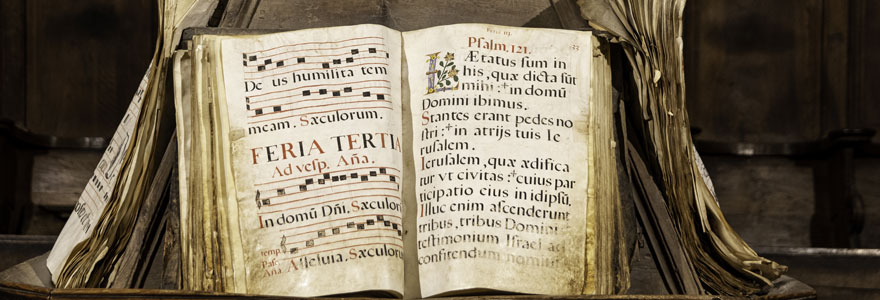 De us humilita tem
meam. Sæculorum.
FERIA TERTIA
Ad vesp. Aña.
In domũ Dñi. Sæculoru
temp.
Pasc.
Alleluia. Sæculorum
Psalm. 121.
LÆtatus sum in
his, quæ dicta sũt
mihi : † in domũ
Domini ibimus.
Stantes erant pedes no
stri : † in atrijs tuis Ie
rusalem.
Ierusalem, quæ ædifica
tur vt civitas : † cuius par
ticipatio eius in idipsũ.
Illuc enim ascenderunt
tribus, tribus Domini
testimonium Israel ad
confitendum nomini